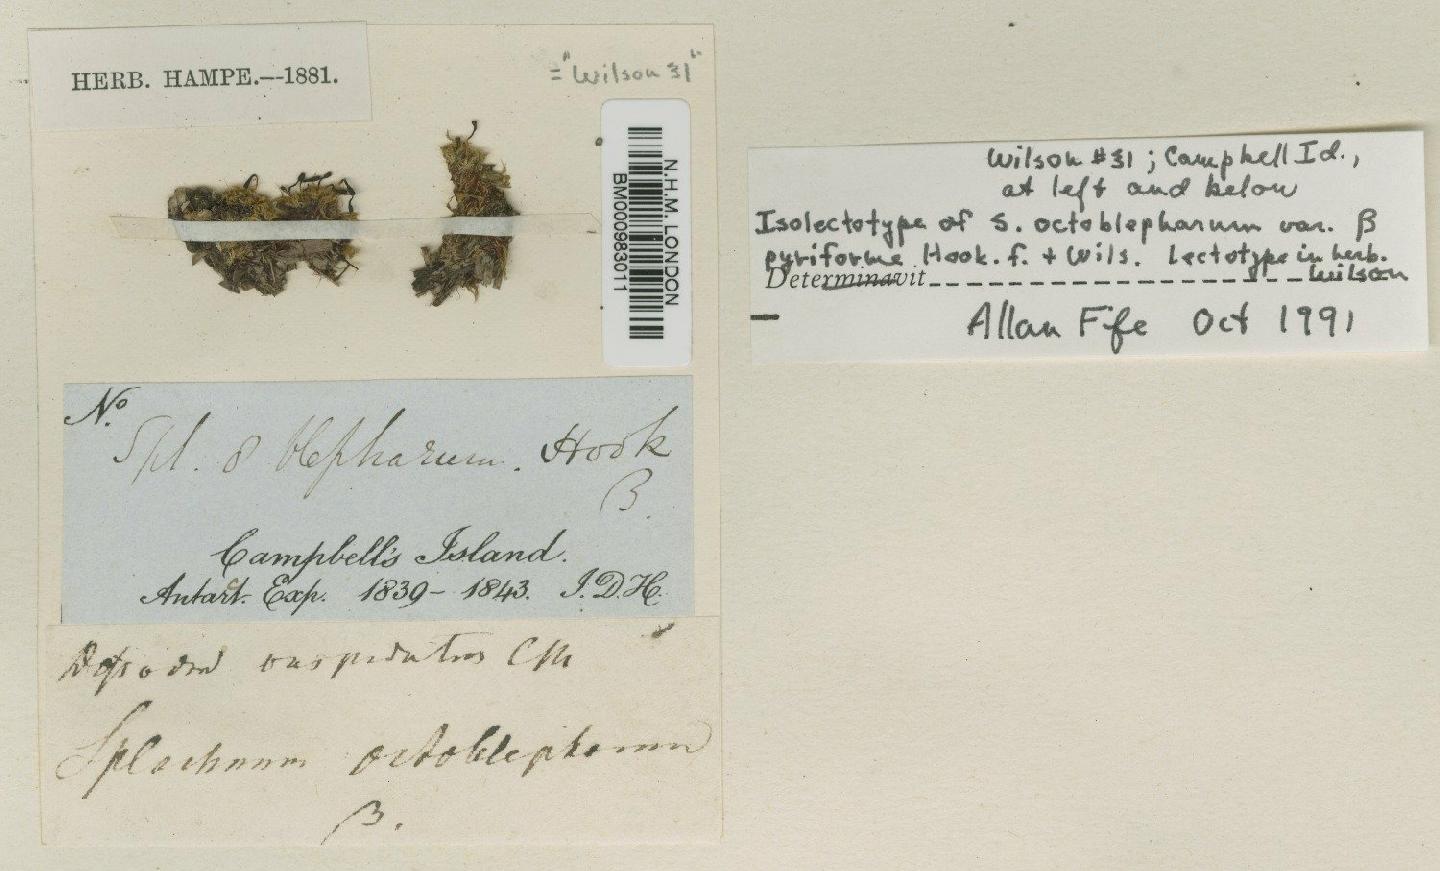 HERB. HAMPE.—1881.
= "Wilson 31"
N.H.M. LONDON
BM000983011
No.
Spl. 8 blepharum. Hook
β.
Campbell's Island.
Antarct. Exp. 1839– 1843. J.D.H.
cuspidatus CM
Splachnum octoblepharum
β.
Wilson #31 ; Campbell Id.,
at left and below
Isolectotype of S. octoblepharum var. β
pyriforme Hook. f. + Wils. lectotype in herb.
Determinavit Wilson
Allan Fife Oct 1991